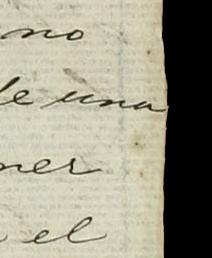 no
le una
ner
el